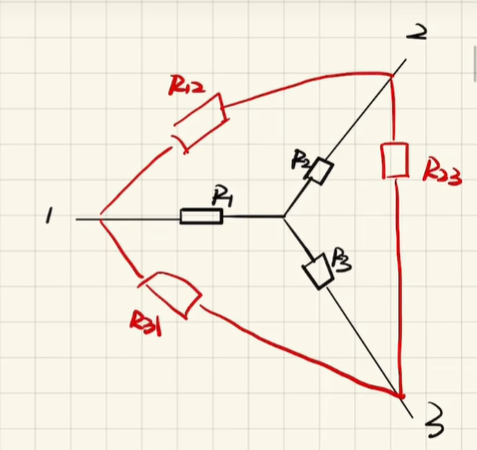 2
R12
R2
R23
1
R1
R3
R31
3